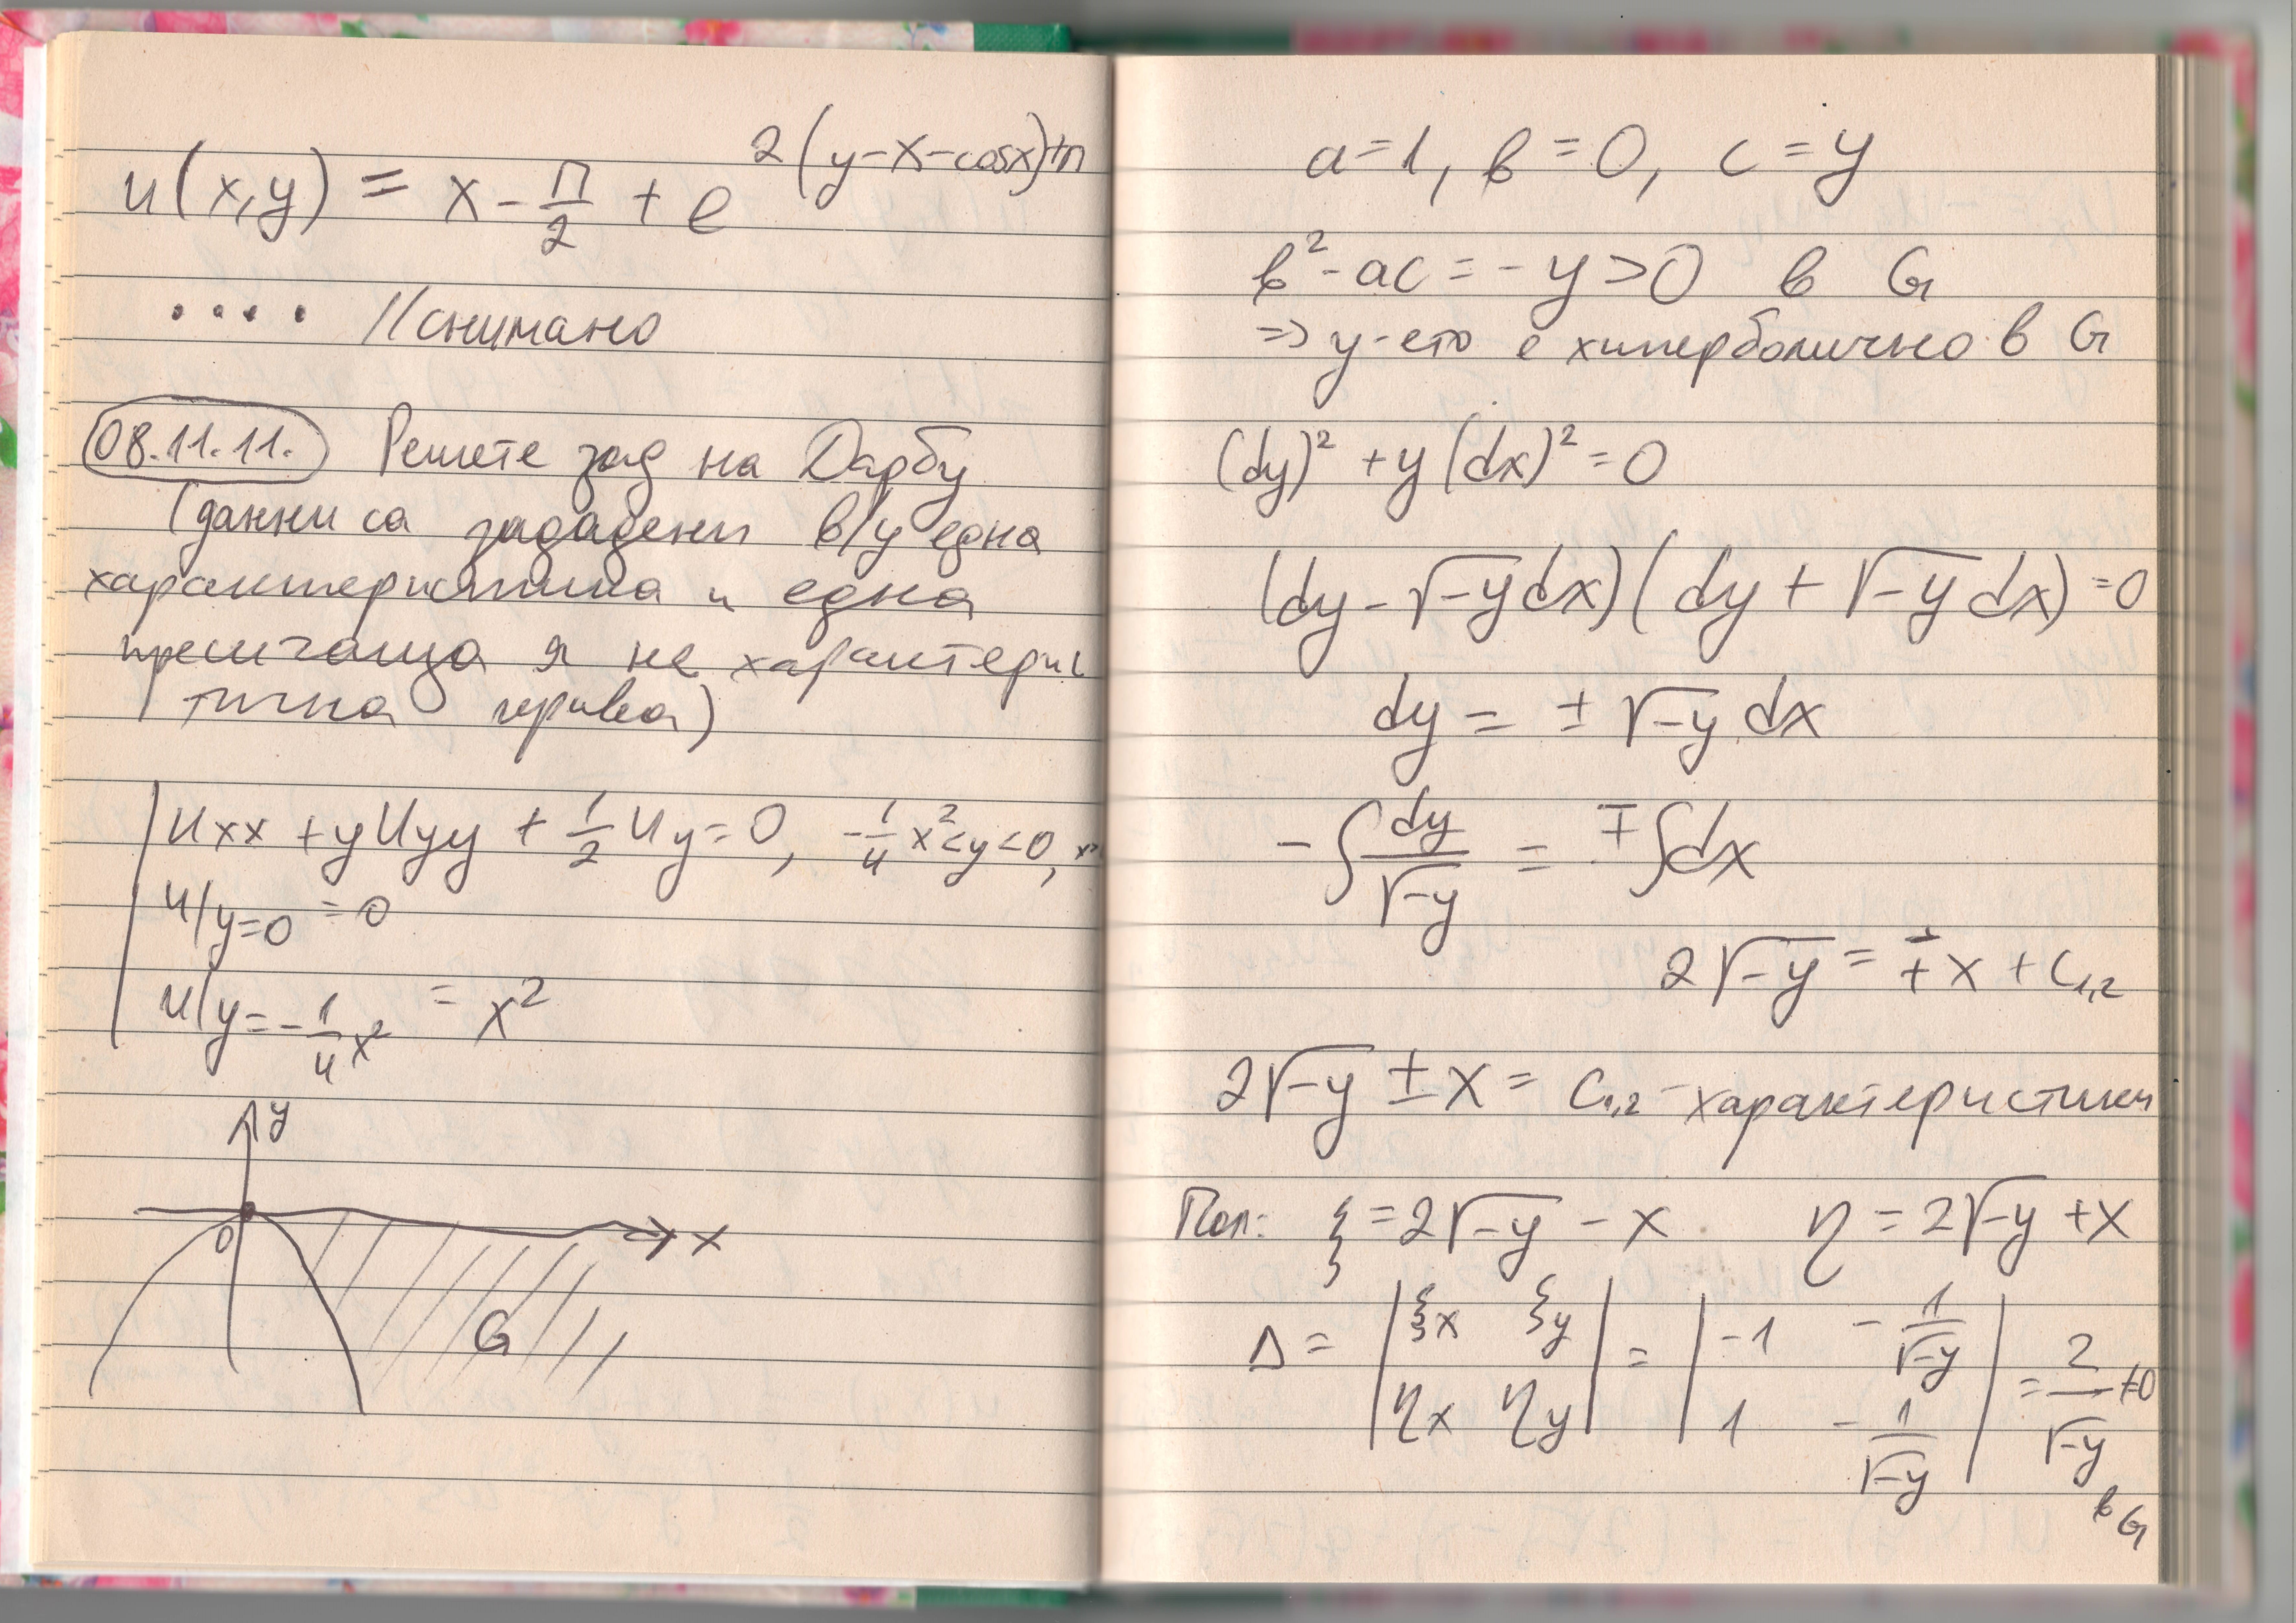 u(x,y) = x - π/2 + e^{2(y-x-cosx)+π}
.... //снимано
08.11.11. Решете зад на Дарбу
(данни са зададени в/у една
характеристика и една
пресичаща я не характерис
тична крива)
u_xx + y u_yy + 1/2 u_y = 0, -1/4 x² < y < 0,
u|_{y=0} = 0
u|_{y=-1/4 x²} = x²
y
0
x
G
a=1, в=0, c=y
в²-ac = -y > 0 в G
=> у-ето е хиперболично в G
(dy)² + y(dx)² = 0
(dy - √-y dx)(dy + √-y dx) = 0
dy = ± √-y dx
-∫ dy/√-y = ∓∫dx
2√-y = ∓x + C_{1,2}
2√-y ± x = C_{1,2} - характеристики
Пол: ξ = 2√-y - x η = 2√-y + x
Δ = |ξx ξy; ηx ηy| = |-1 -1/√-y; 1 -1/√-y| = 2/√-y ≠0
в G